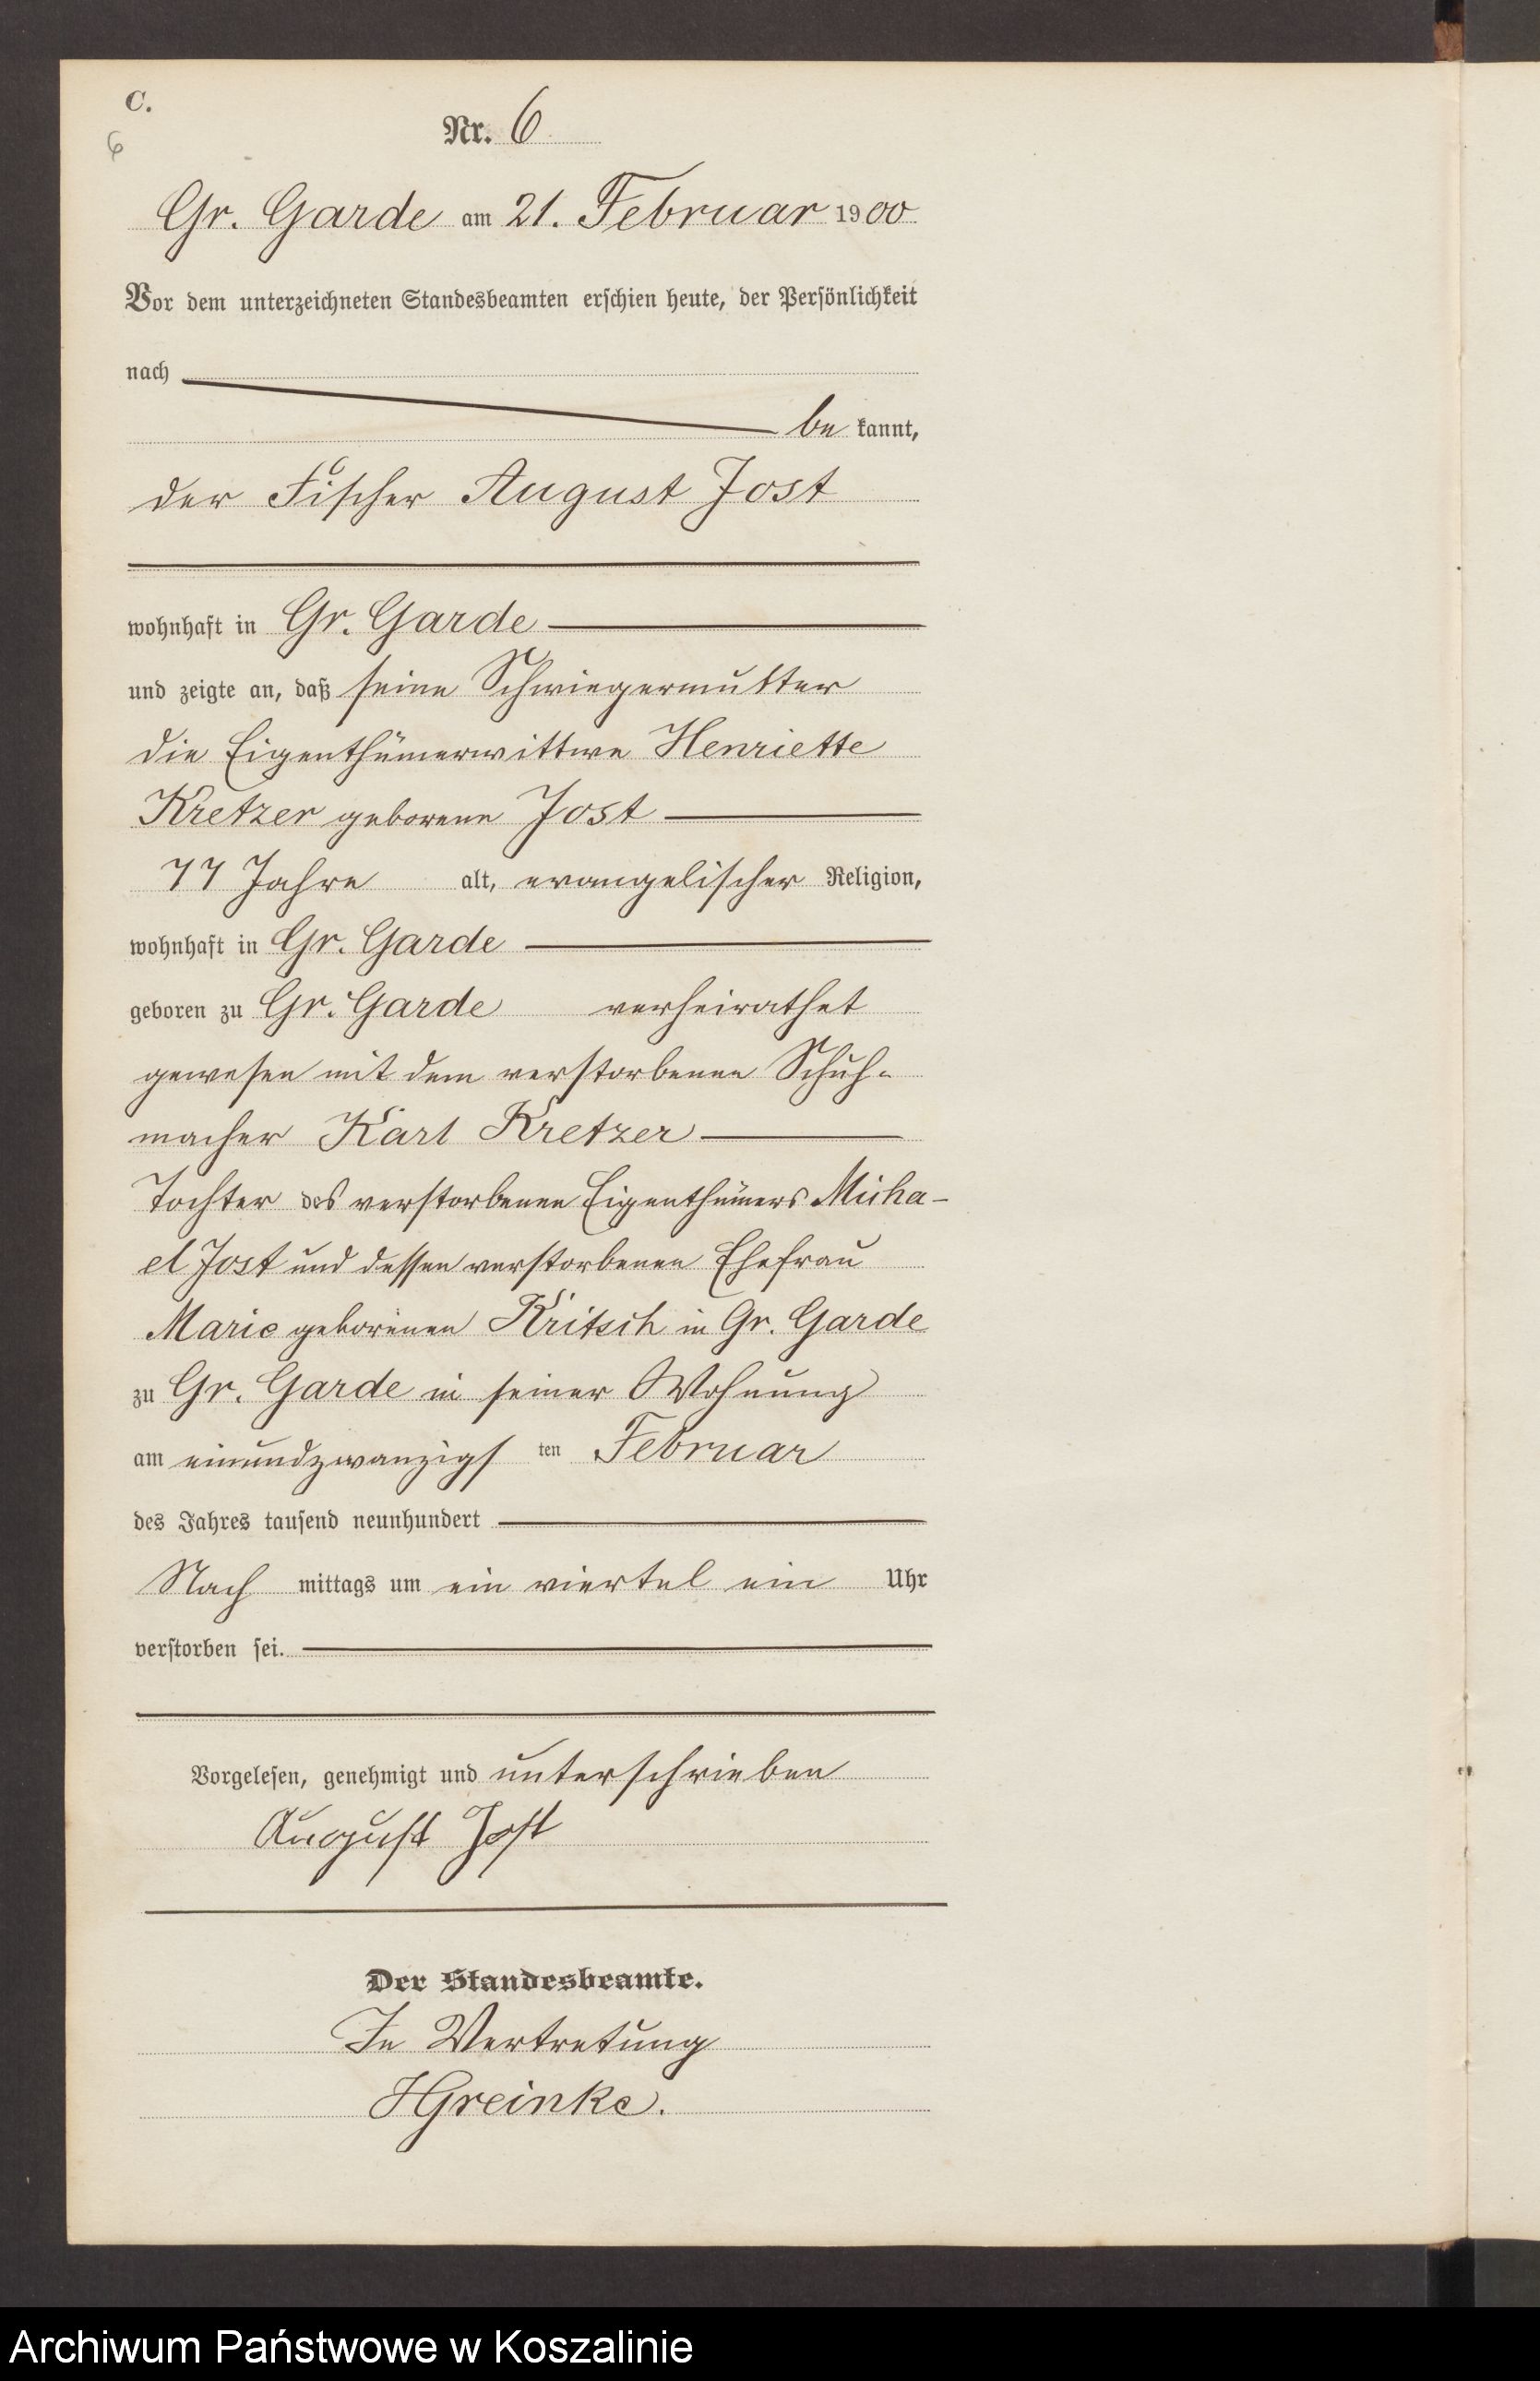 C.
6
Nr. 6
Gr. Garde am 21. Februar 1900
Vor dem unterzeichneten Standesbeamten erschien heute, der Persönlichkeit
nach
be kannt,
der Fischer August Jost
wohnhaft in Gr. Garde
und zeigte an, daß seine Schwiegermutter
die Eigenthümerwittwe Henriette
Kretzer geborene Jost
77 Jahre alt, evangelischer Religion,
wohnhaft in Gr. Garde
geboren zu Gr. Garde verheirathet
gewesen mit dem verstorbenen Schuh-
macher Karl Kretzer
Tochter des verstorbenen Eigenthümers Micha-
el Jost und dessen verstorbenen Ehefrau
Marie geborenen Kritsch in Gr. Garde
zu Gr. Garde in seiner Wohnung
am einundzwanzigs ten Februar
des Jahres tausend neunhundert
Nach mittags um ein viertel ein Uhr
verstorben sei.
Vorgelesen, genehmigt und unterschrieben
August Jost
Der Standesbeamte.
In Vertretung
HGreinke.
Archiwum Państwowe w Koszalinie